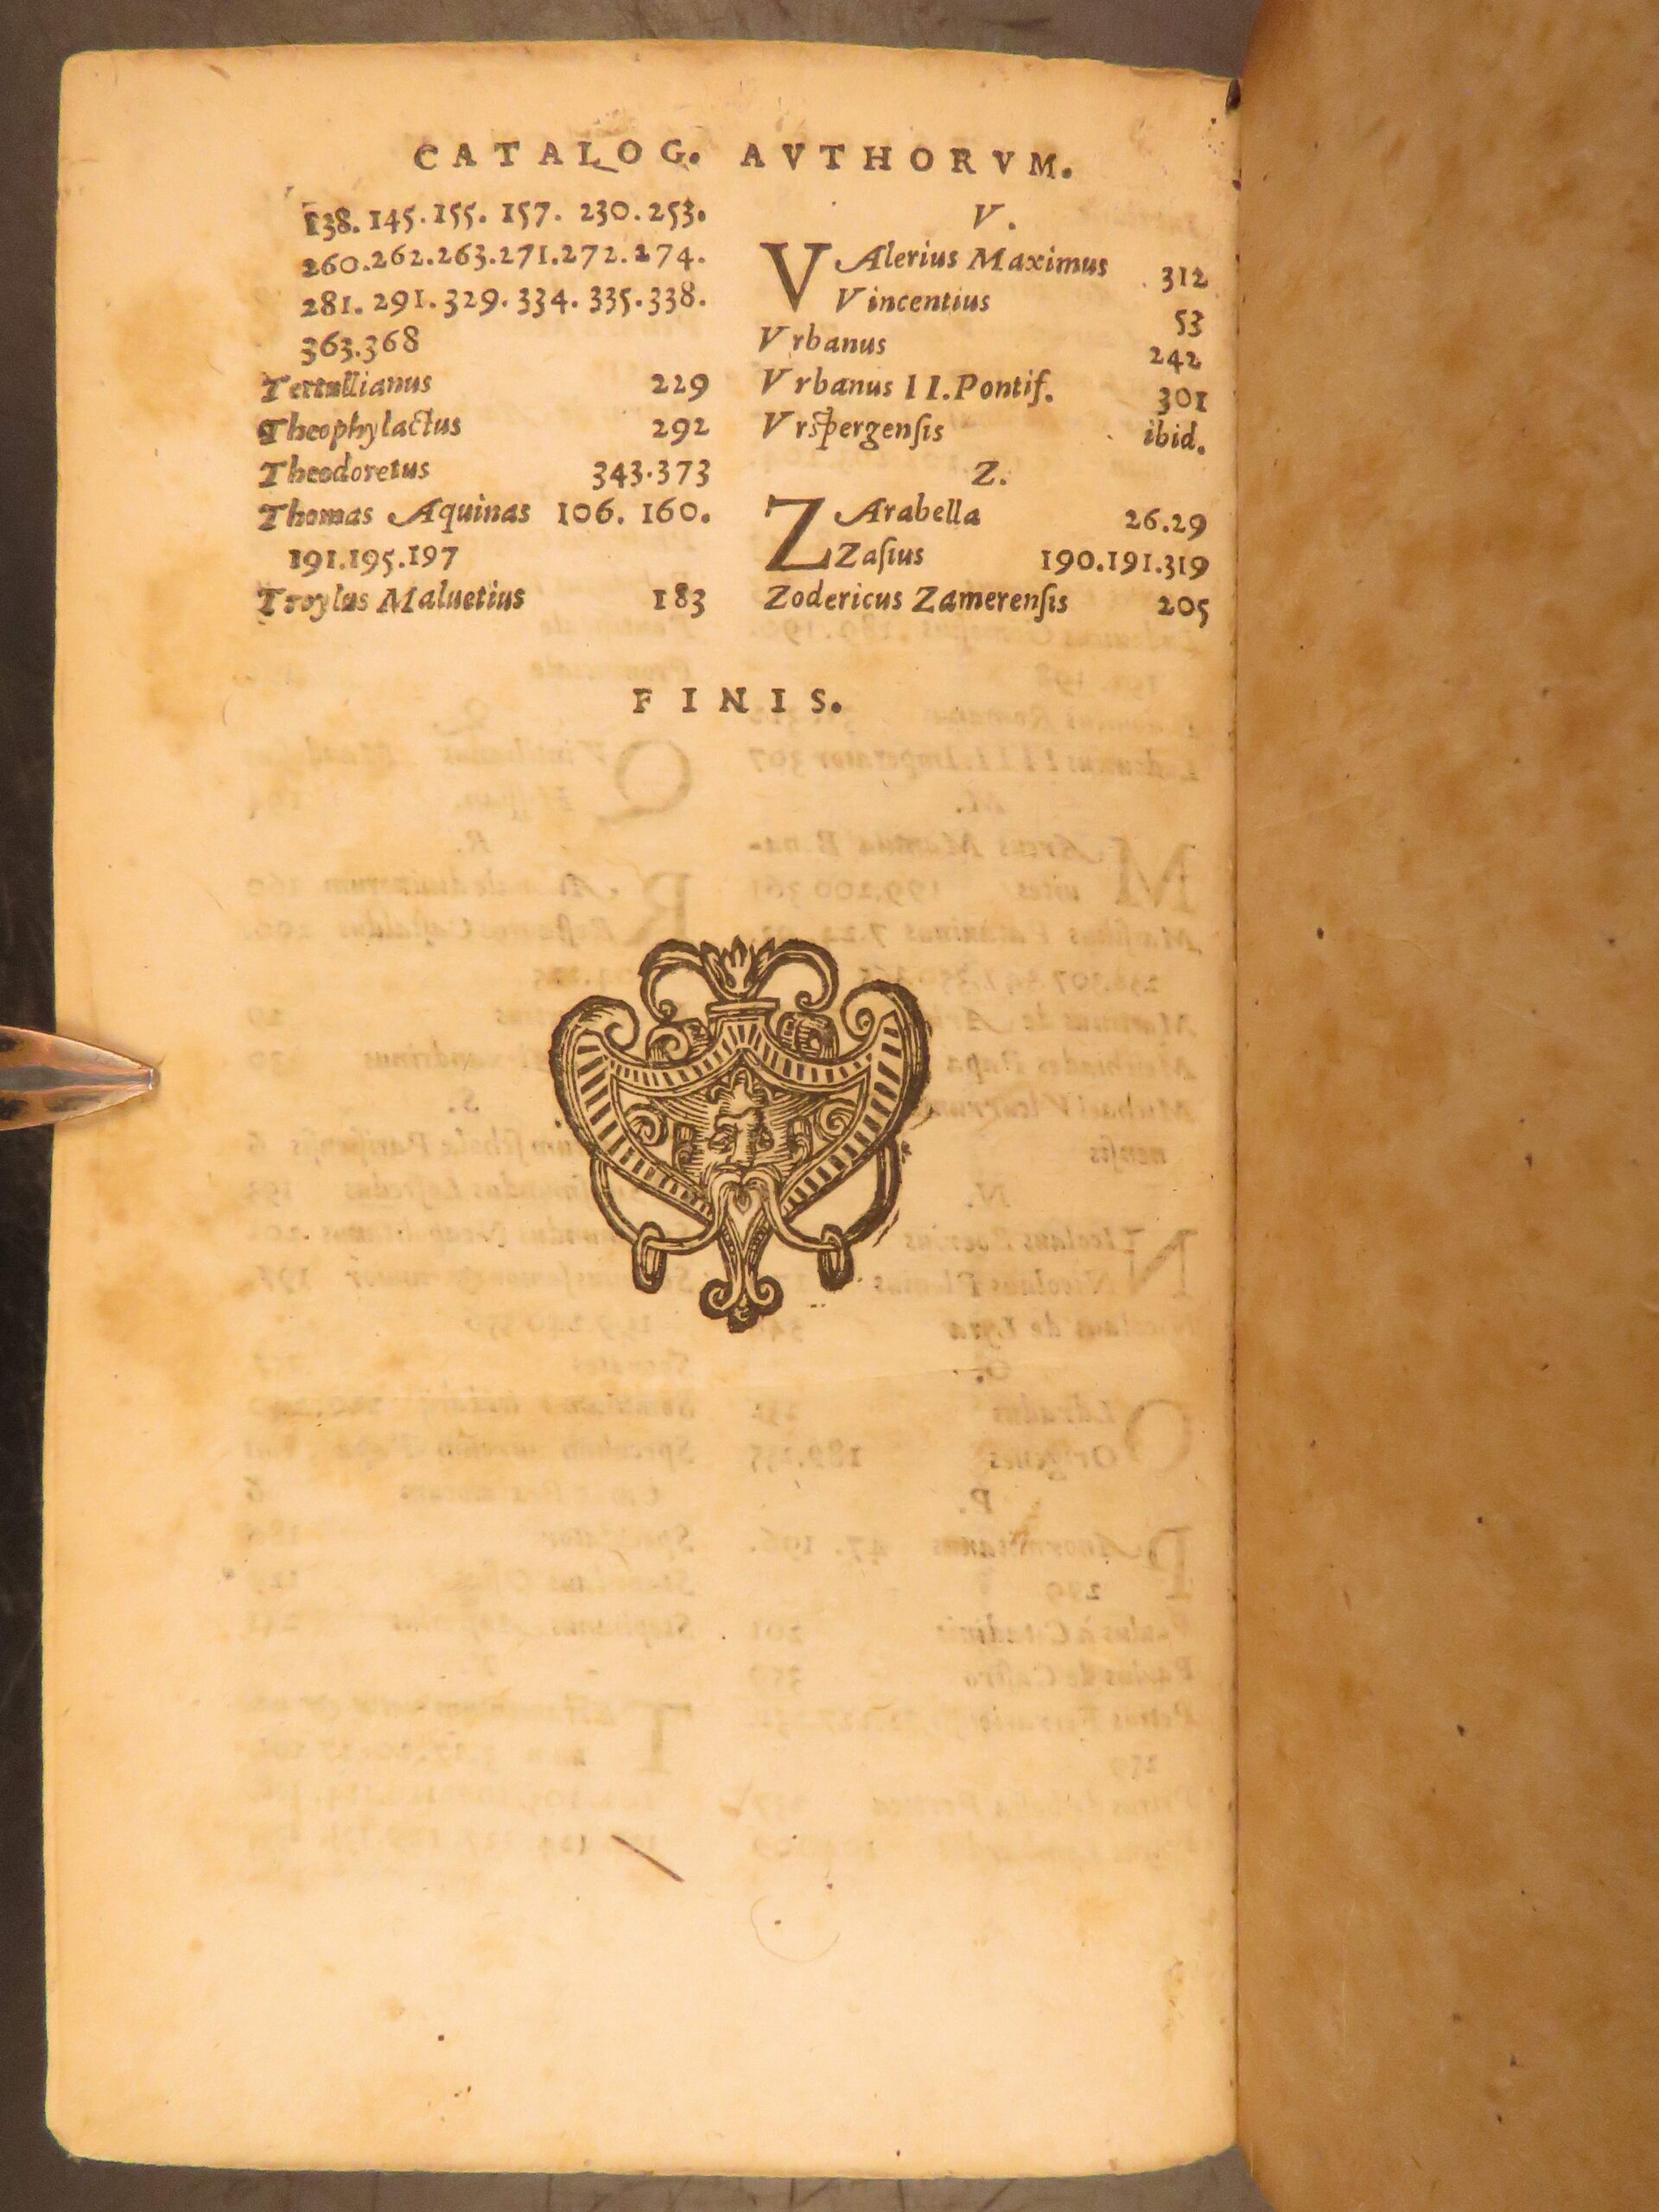 CATALOG. AVTHORVM.
138. 145. 155. 157. 230. 253.
260.262.263.271.272.274.
281. 291. 329. 334. 335.338.
363.368
Tertullianus 229
Theophylactus 292
Theodoretus 343.373
Thomas Aquinas 106. 160.
191.195.197
Troylus Maluetius 183
V.
VAlerius Maximus 312
Vincentius 53
Vrbanus 242
Vrbanus II.Pontif. 301
Vrspergenſis ibid.
Z.
ZArabella 26.29
Zaſius 190.191.319
Zodericus Zamerenſis 205
FINIS.